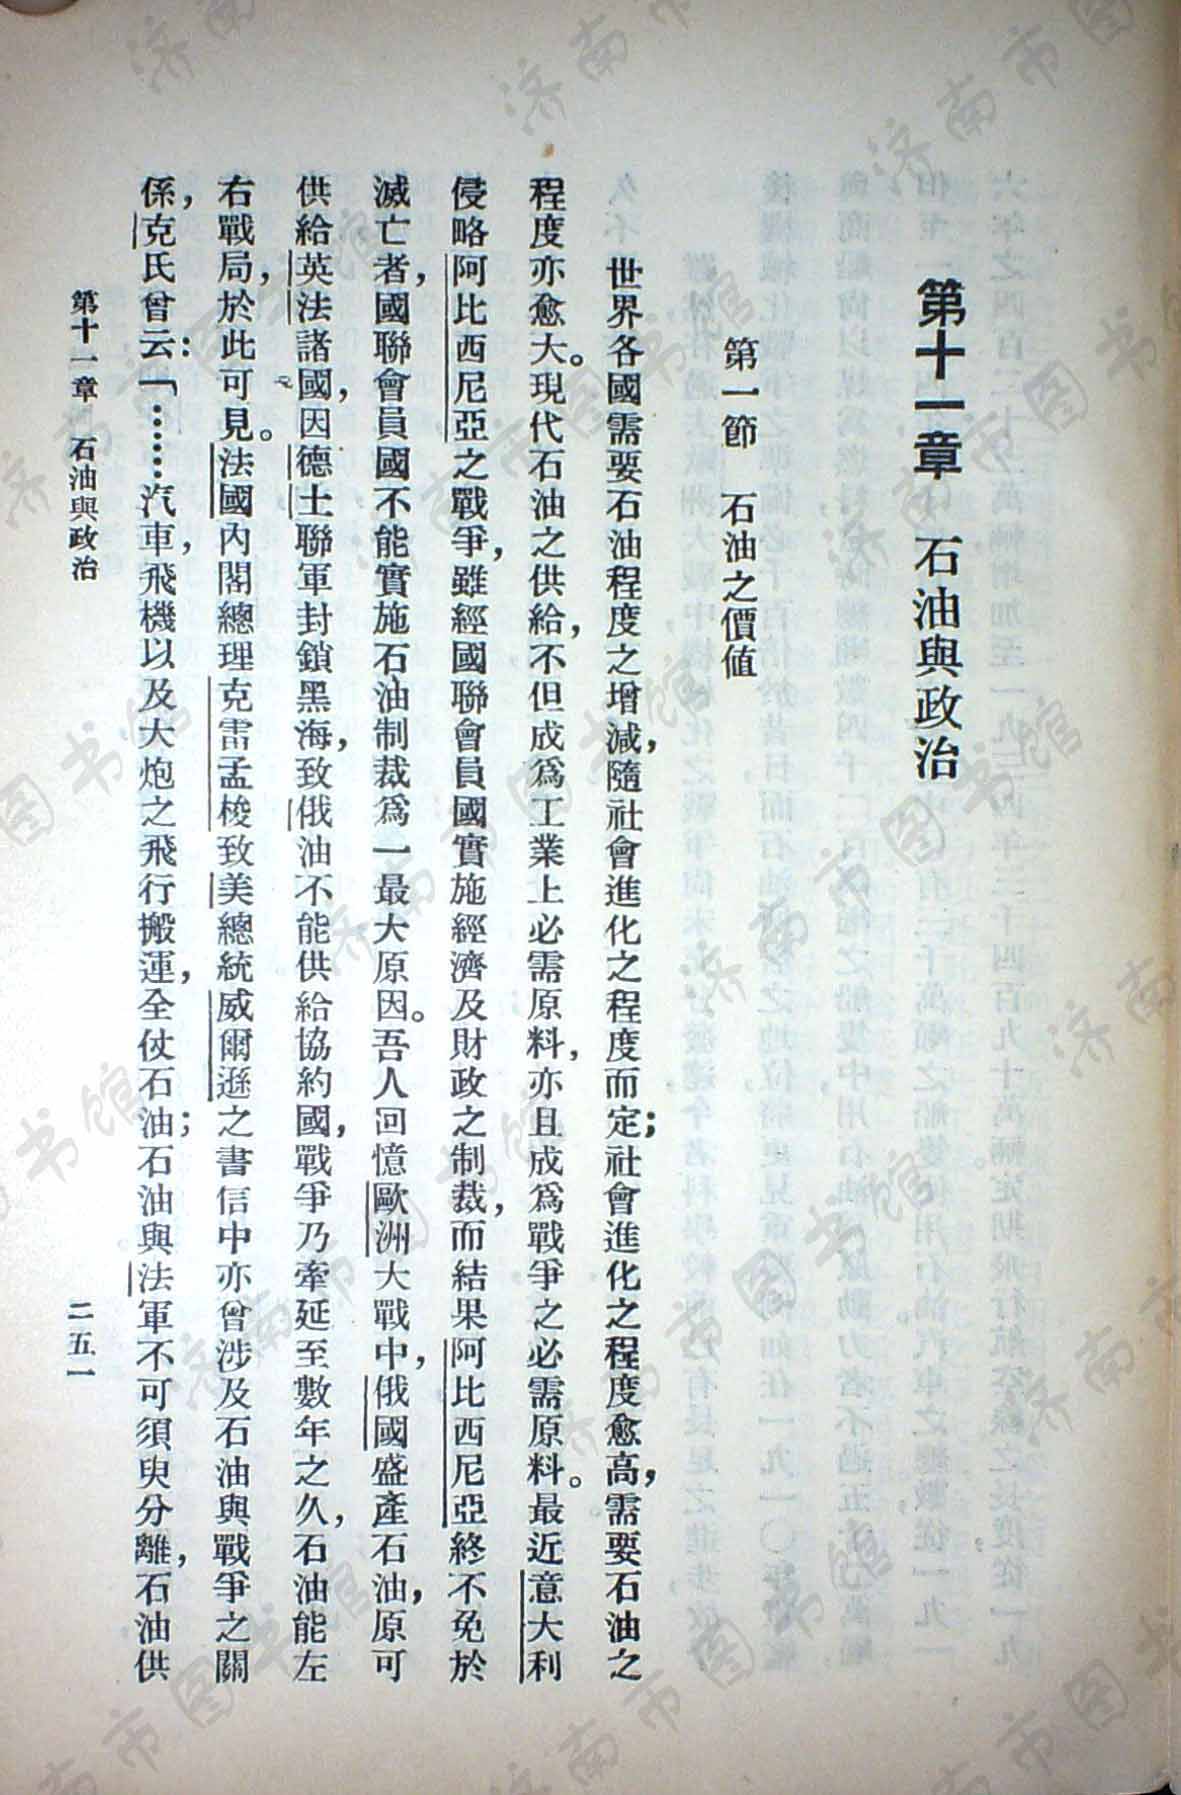 第十一章　石油與政治
第一節　石油之價値
世界各國需要石油程度之增減，隨社會進化之程度而定；社會進化之程度愈高，需要石油之
程度亦愈大。現代石油之供給，不但成爲工業上必需原料，亦且成爲戰爭之必需原料。最近意大利
侵略阿比西尼亞之戰爭，雖經國聯會員國實施經濟及財政之制裁，而結果阿比西尼亞終不免於
滅亡者，國聯會員國不能實施石油制裁爲一最大原因。吾人回憶歐洲大戰中，俄國盛產石油，原可
供給英法諸國，因德土聯軍封鎖黑海，致俄油不能供給協約國，戰爭乃牽延至數年之久，石油能左
右戰局，於此可見。法國內閣總理克雷孟梭致美總統威爾遜之書信中亦曾涉及石油與戰爭之關
係，克氏曾云：「……汽車，飛機以及大炮之飛行搬運，全仗石油；石油與法軍不可須臾分離，石油供
第十一章　石油與政治
二五一
济南市图书馆